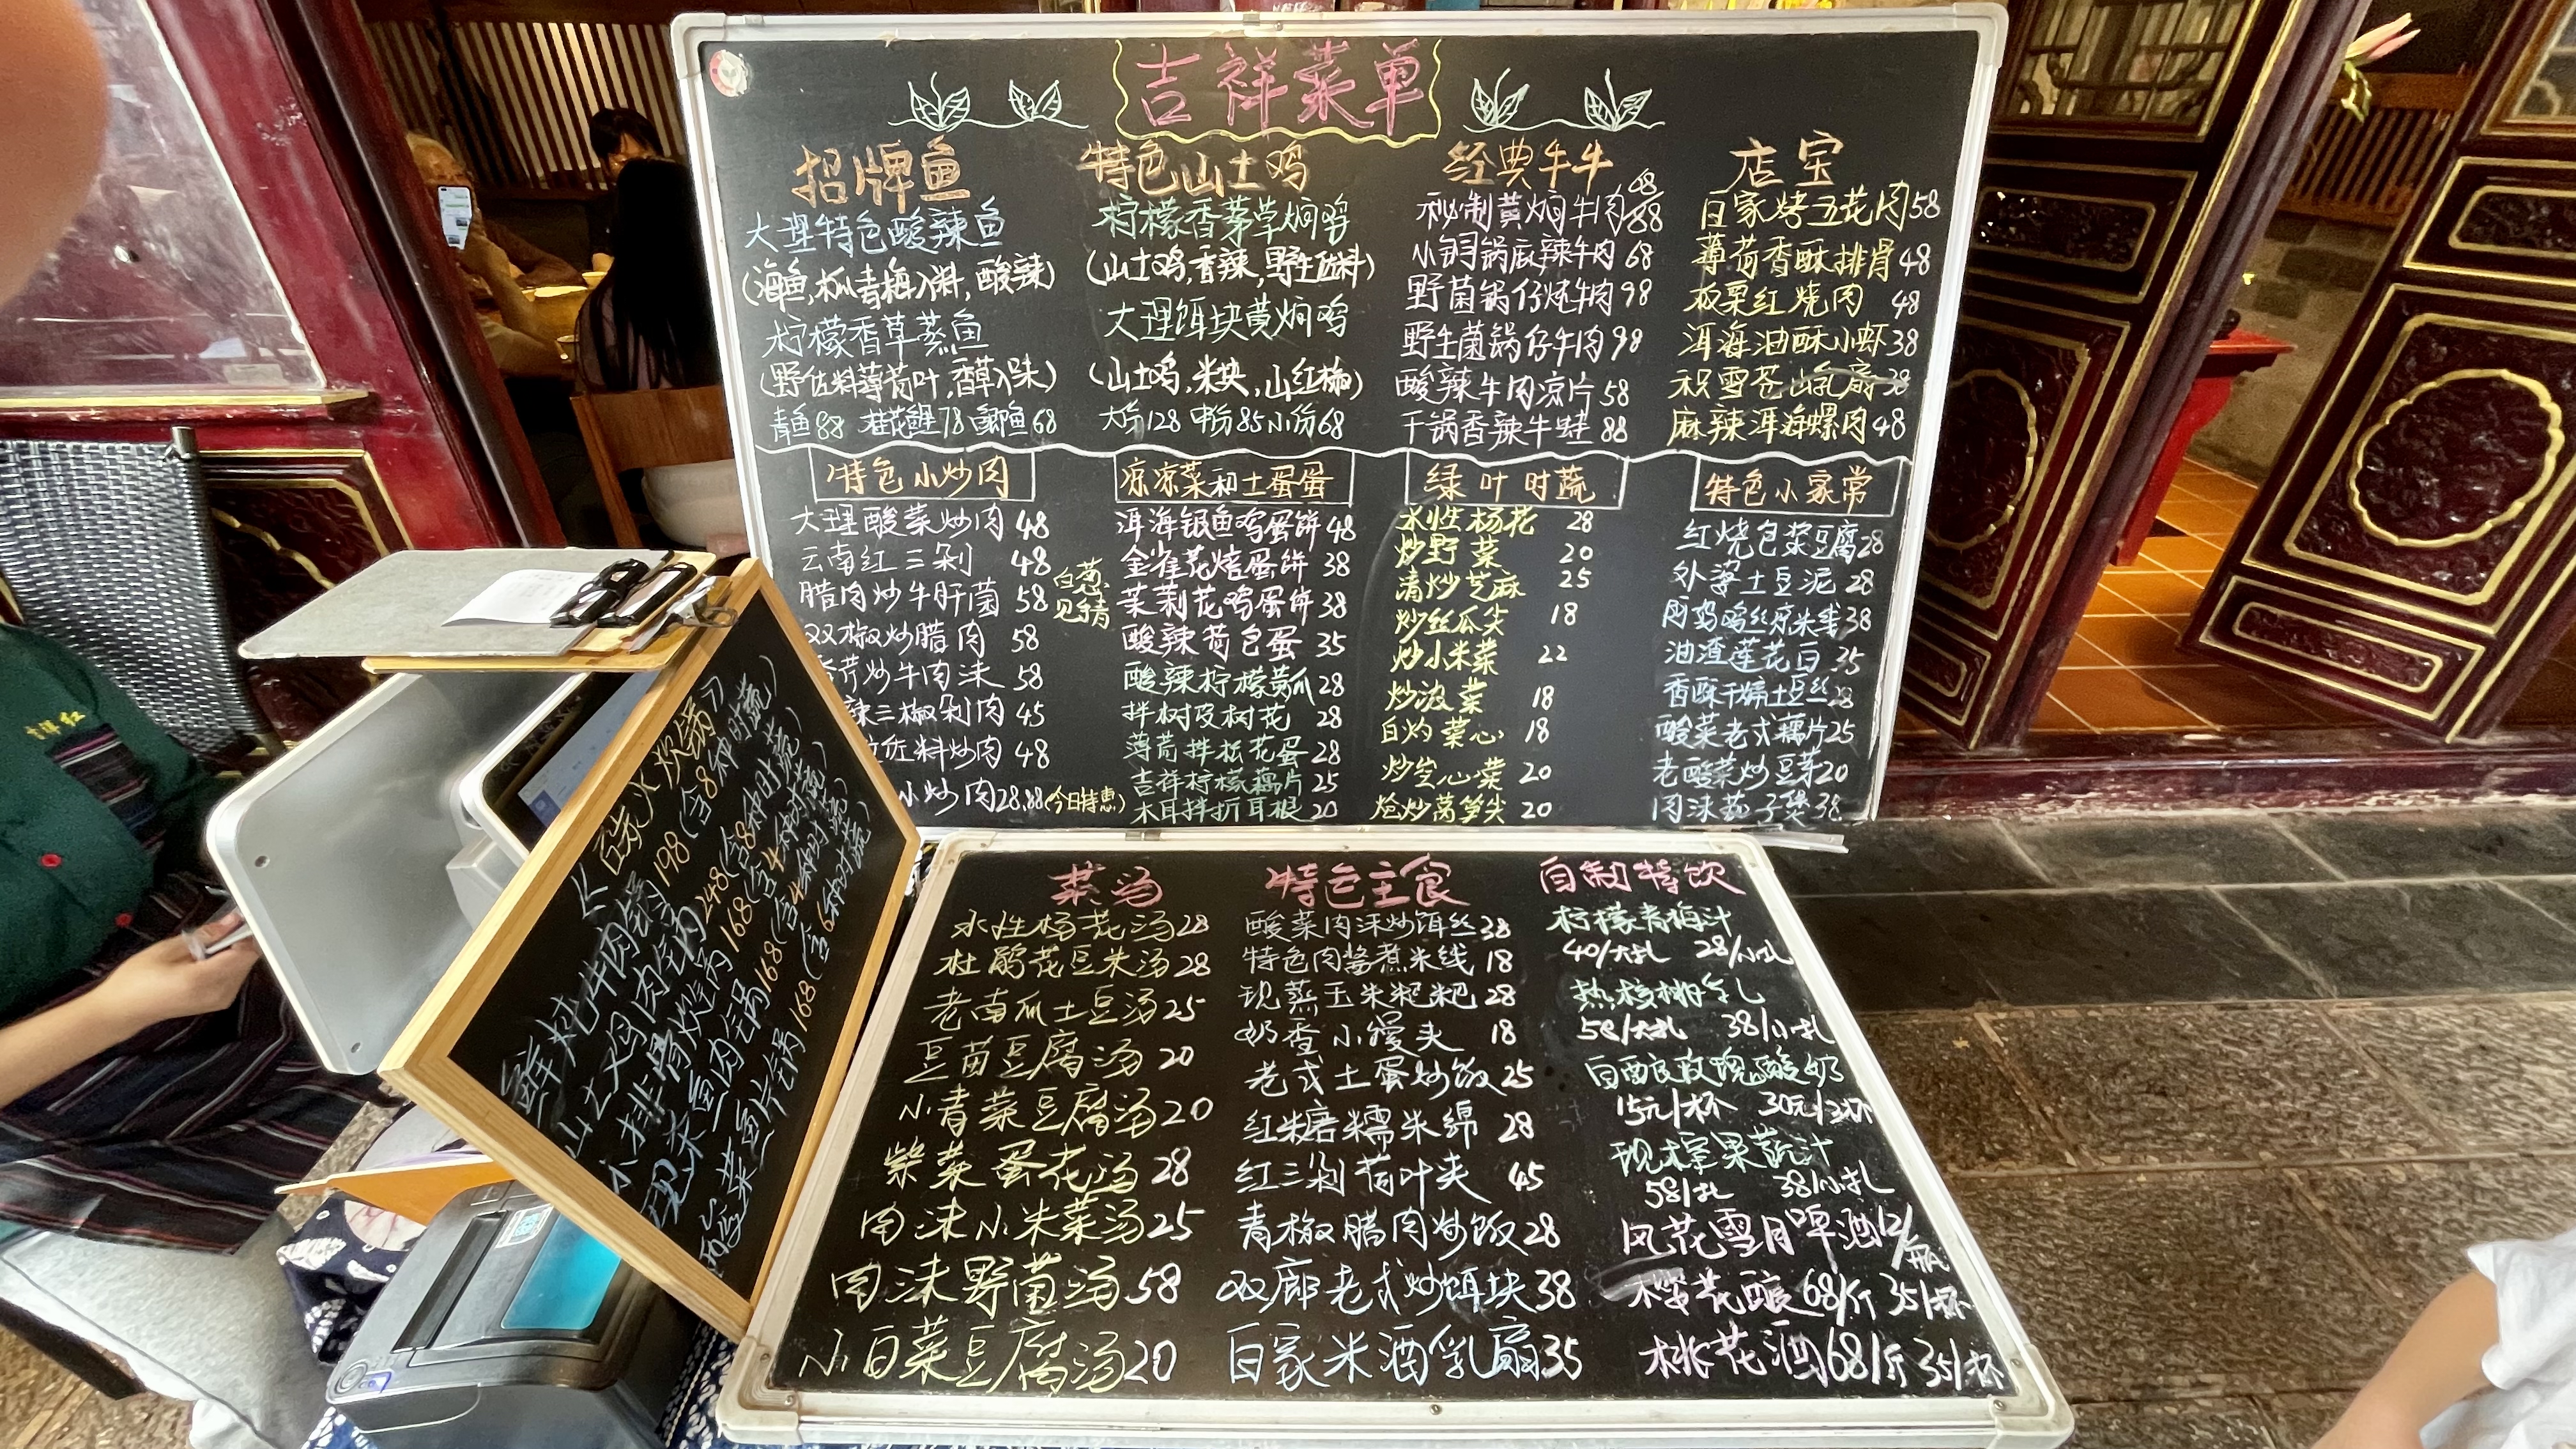 吉祥菜单
招牌鱼
大理特色酸辣鱼
(海鱼,木瓜青梅入料,酸辣)
柠檬香草蒸鱼
(野佐料薄荷叶,香草入味)
青鱼88 桂花鲤78 鲫鱼68
特色山土鸡
柠檬香茅草焖鸡
(山土鸡,香辣,野生佐料)
大理饵块黄焖鸡
(山土鸡,米块,山红椒)
大份128 中份85 小份68
经典牛牛
秘制黄焖牛肉
小铜锅麻辣牛肉 68
野菌锅仔炖牛肉 98
野生菌锅仔牛肉 98
酸辣牛肉凉片 58
干锅香辣牛蛙 88
店宝
白家烤五花肉 58
薄荷香酥排骨 48
板栗红烧肉 48
洱海油酥小虾 38
积雪苍山乳扇 38
麻辣洱海螺肉 48
特色小炒肉
大理酸菜炒肉 48
云南红三剁 48
腊肉炒牛肝菌 58
双椒炒腊肉 58
芹炒牛肉沫 58
辣三椒剁肉 45
佐料炒肉 48
小炒肉 28.88(今日特惠)
白葱
见精
凉凉菜和土蛋蛋
洱海银鱼鸡蛋饼 48
金雀花焙蛋饼 38
茉莉花鸡蛋饼 38
酸辣荷包蛋 35
酸辣柠檬黄瓜 28
拌树皮树花 28
薄荷拌松花蛋 28
吉祥柠檬藕片 25
木耳拌折耳根 20
绿叶时蔬
水性杨花 28
炒野菜 20
清炒芝麻 25
炒丝瓜尖 18
炒小米菜 22
炒波菜 18
白灼菜心 18
炒空心菜 20
炝炒莴笋尖 20
特色小家常
红烧包浆豆腐 28
外婆土豆泥 28
鸡丝凉米线 38
油渣莲花白 35
香酥干煸土豆丝 28
酸菜老式藕片 25
老酸菜炒豆芽 20
肉沫茄子煲 38
198(含8种时蔬)
248(含8种时蔬)
168(含4种时蔬)
168(含4种时蔬)
168(含6种时蔬)
菜汤
水性杨花汤 28
杜鹃花豆米汤 28
老南瓜土豆汤 25
豆苗豆腐汤 20
小青菜豆腐汤 20
紫菜蛋花汤 28
肉沫小米菜汤 25
肉沫野菌汤 58
小白菜豆腐汤 20
特色主食
酸菜肉沫炒饵丝 38
特色肉酱煮米线 18
现蒸玉米粑粑 28
奶香小馒夹 18
老式土蛋炒饭 25
红糖糯米绵 28
红三剁荷叶夹 45
青椒腊肉炒饭 28
双廊老式炒饵块 38
白家米酒乳扇 35
自制特饮
柠檬青梅汁
40/大扎 28/小扎
热核桃乳
58/大扎 38/小扎
自酿玫瑰酸奶
15元/杯 30元/3杯
现榨果蔬汁
58/扎 38/小扎
风花雪月啤酒12/瓶
樱花酿 68/斤 35/杯
桃花酒68/斤 35/杯